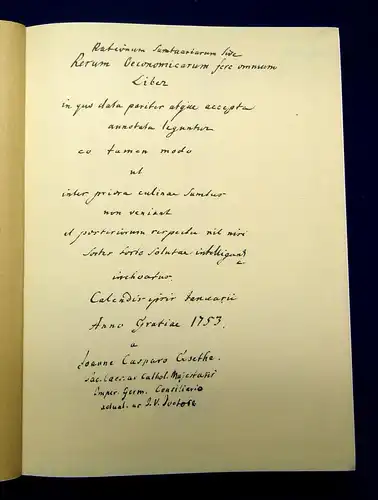 Rationum Sumtuariarum sive
Rerum Oeconomicarum fere omnium
Liber
in quo data pariter atque accepta
annotata leguntur
eo tamen modo
ut
inter priora culinae sumtus
non veniant
et posteriorum respectu nil nisi
sorter toto solutae intelligant
inchoatus
Calendis ipsis Januarii
Anno Gratiae 1753.
a
Joanne Casparo Goethe.
Sac. Caes. ac Cathol. Majestatis
Imper. Germ. Consiliario
actual. ac J. V. Doctore